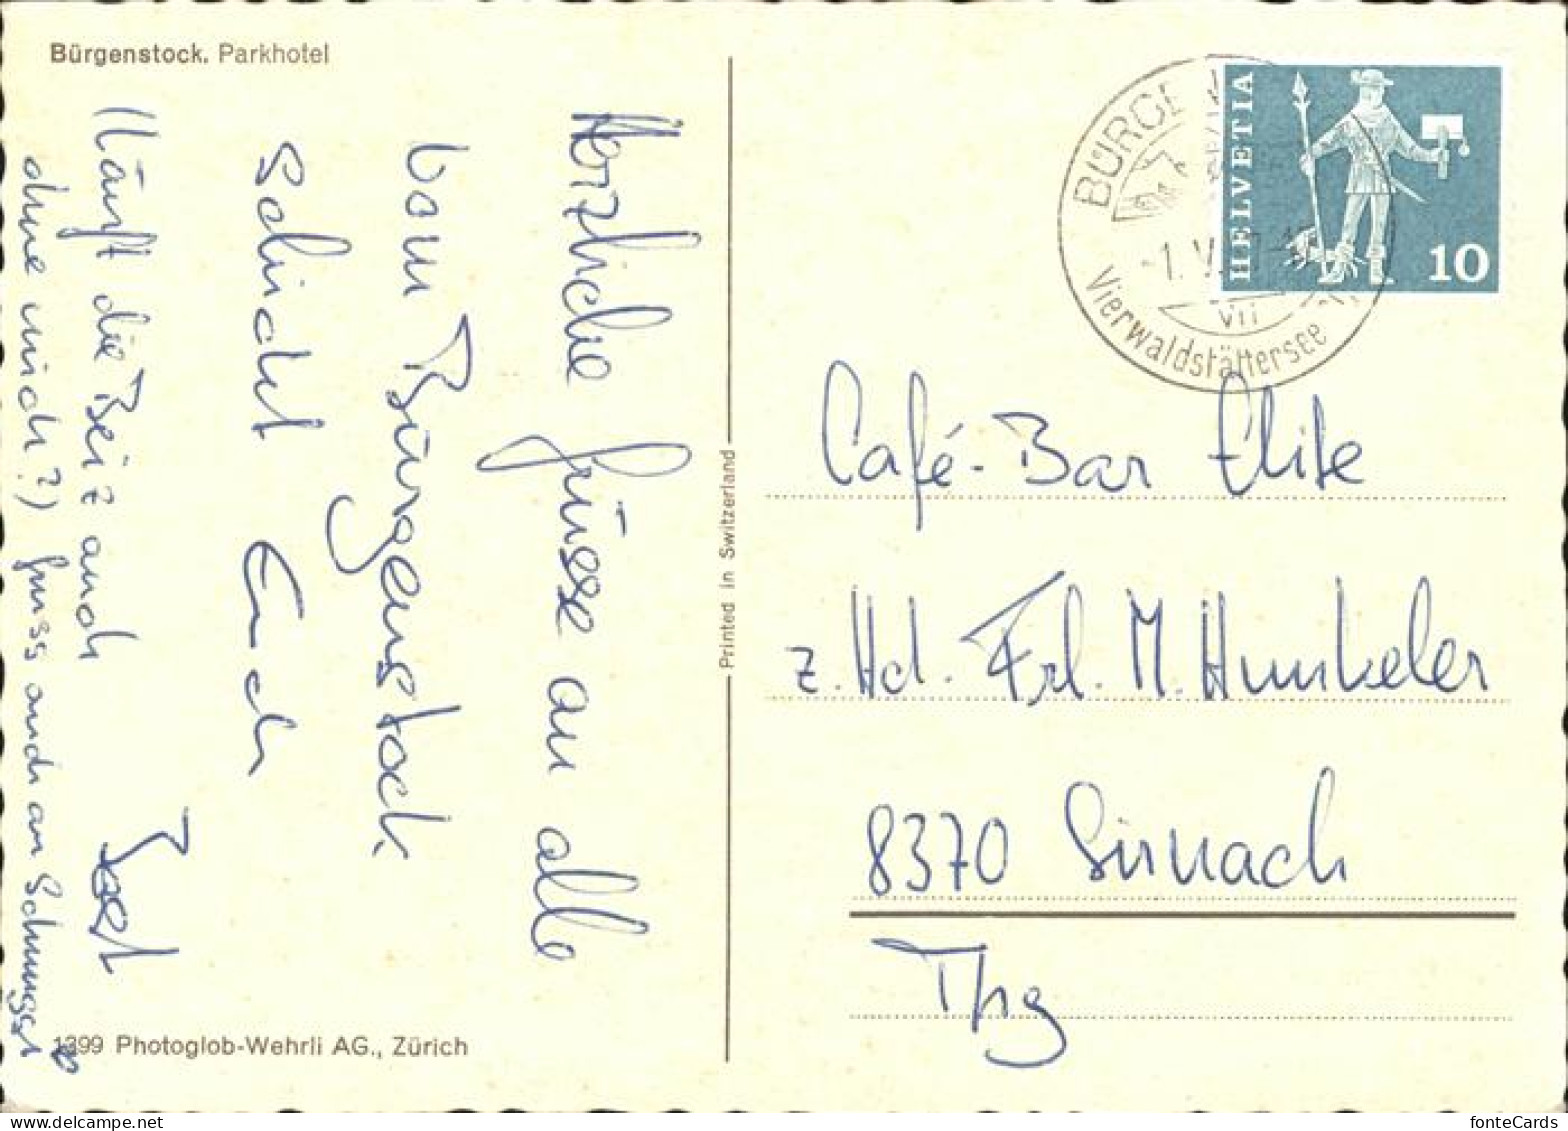 Bürgenstock. Parkhotel
Herzliche Grüsse an alle
vom Bürgenstock
schickt Euch
(Läuft die Beiz auch
ohne mich?) Gruss auch an
Printed in Switzerland
1399 Photoglob-Wehrli AG., Zürich
BÜRGE
-1. V.
VII
Vierwaldstättersee
HELVETIA
10
Café-Bar Elite
z. Hd. Frl. M. Hunkeler
8370 Sirnach
Thg
delcampe.net
fonteCards